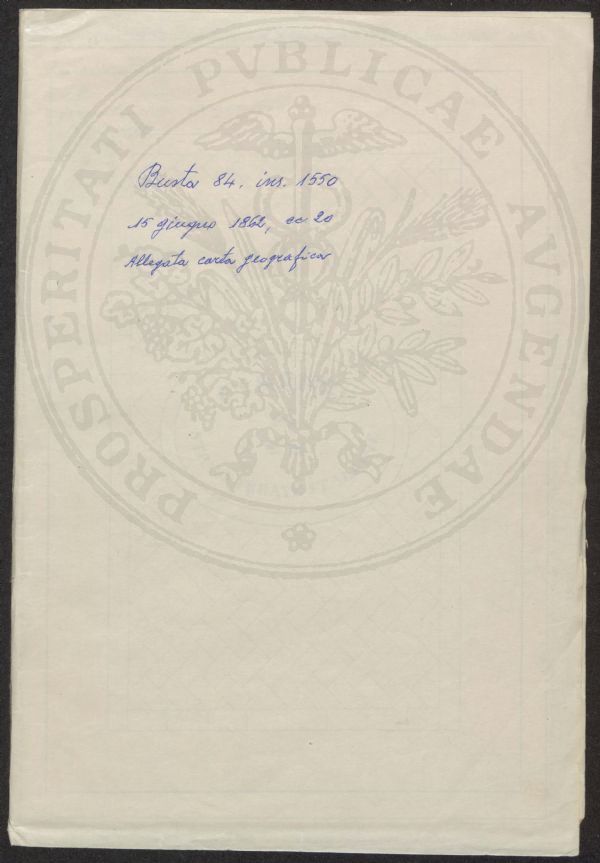 PROSPERITATI PVBLICAE AVGENDAE
Busta 84. ins. 1550
15 giugno 1862, cc 20
Allegata carta geografica